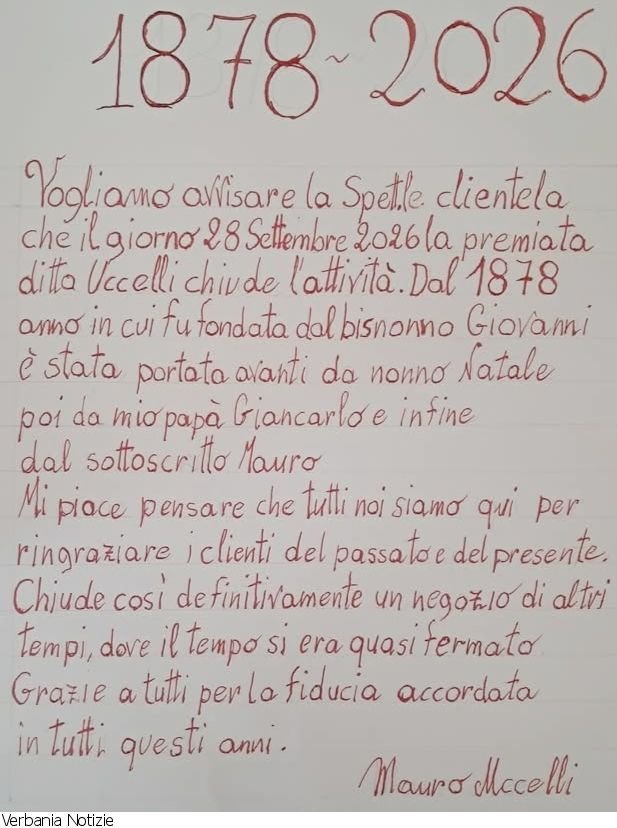 1878~2026
Vogliamo avvisare la Spett.le clientela
che il giorno 28 Settembre 2026 la premiata
ditta Uccelli chiude l'attività. Dal 1878
anno in cui fu fondata dal bisnonno Giovanni
è stata portata avanti da nonno Natale
poi da mio papà Giancarlo e infine
dal sottoscritto Mauro
Mi piace pensare che tutti noi siamo qui per
ringraziare i clienti del passato e del presente.
Chiude così definitivamente un negozio di altri
tempi, dove il tempo si era quasi fermato
Grazie a tutti per la fiducia accordata
in tutti questi anni.
Mauro Uccelli
Verbania Notizie